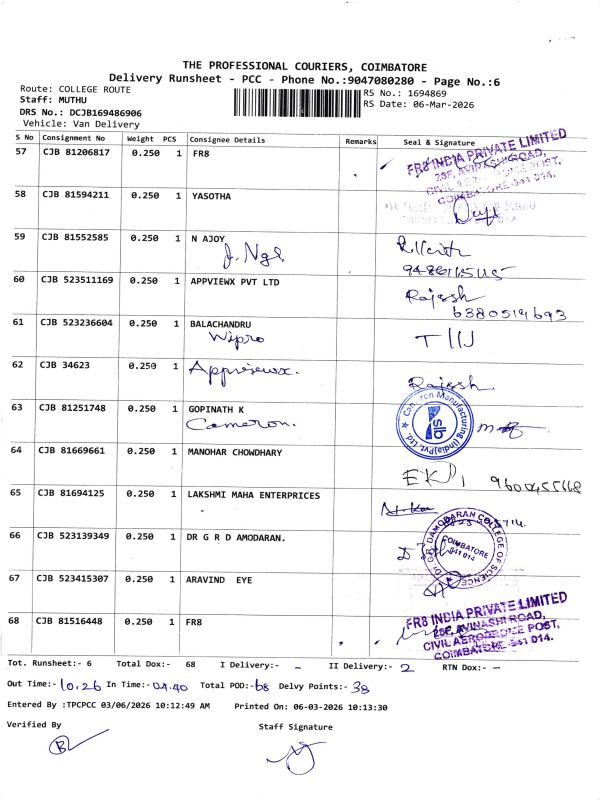 THE PROFESSIONAL COURIERS, COIMBATORE
Delivery Runsheet - PCC - Phone No.:9047080280 - Page No.:6
Route: COLLEGE ROUTE
Staff: MUTHU
DRS No.: DCJB169486906
Vehicle: Van Delivery
RS No.: 1694869
RS Date: 06-Mar-2026
S No Consignment No Weight PCS Consignee Details Remarks Seal & Signature
57 CJB 81206817 0.250 1 FR8
FR8 INDIA PRIVATE LIMITED
28F, AVINASHI ROAD,
CIVIL AERODROME POST,
COIMBATORE-641 014.
58 CJB 81594211 0.250 1 YASOTHA
59 CJB 81552585 0.250 1 N AJOY
60 CJB 523511169 0.250 1 APPVIEWX PVT LTD
Rajesh
61 CJB 523236604 0.250 1 BALACHANDRU
Wipro
62 CJB 34623 0.250 1 Appviewx.
Rajesh.
63 CJB 81251748 0.250 1 GOPINATH K
Cameron.
Cameron Manufacturing (India) Pvt. Ltd.
slb
64 CJB 81669661 0.250 1 MANOHAR CHOWDHARY
65 CJB 81694125 0.250 1 LAKSHMI MAHA ENTERPRICES
66 CJB 523139349 0.250 1 DR G R D AMODARAN.
Dr. G.R. DAMODARAN COLLEGE OF SCIENCE
COIMBATORE
641 014
67 CJB 523415307 0.250 1 ARAVIND EYE
68 CJB 81516448 0.250 1 FR8
FR8 INDIA PRIVATE LIMITED
28F, AVINASHI ROAD,
CIVIL AERODROME POST,
COIMBATORE-641 014.
Tot. Runsheet:- 6 Total Dox:- 68 I Delivery:- - II Delivery:- 2 RTN Dox:- -
Out Time:- 10.26 In Time:- 04.40 Total POD:- 68 Delvy Points:- 38
Entered By :TPCPCC 03/06/2026 10:12:49 AM Printed On: 06-03-2026 10:13:30
Verified By Staff Signature